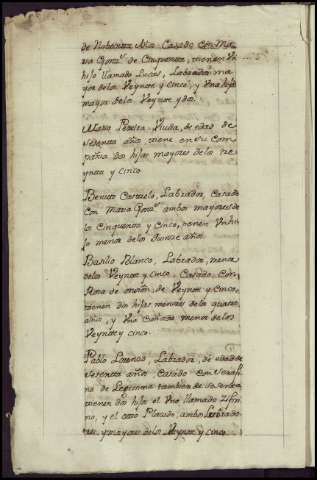 de Nobenta Años Casado con Ma
ria Gonz.s de Cinquenta, tienen Vn
hijo llamado Lucas, Labrador ma
yor de los Veynte y cinco, y Vna hija
mayor de los Veynte y dos.
Maria Pereira Viuda, de edad de
Setenta años tiene en su com
pañia dos hijas mayores de los ve
ynte y cinco
Benito Labrador, Casado
con Maria Gonz.s ambos mayores de
los Cinquenta y Cinco, tienen Vn hi
jo menor de los quince años.
Basilio Blanco, Labrador, menor
de los Veynte y cinco, Casado, con
Rosa de de Veynte y cinco,
tienen dos hijas menores de los quatro
años, y Vna Cuñada menor de los
Veynte y cinco.
Pablo Lorenzo, Labrador, de edad de
Setenta años casado con Serafi
na de Ledesma tambien de Sesenta
tienen dos hijos el Vno llamado Zifri
no, y el otro Placido, ambos Labrado
res, y mayores de los Veynte y cinco.